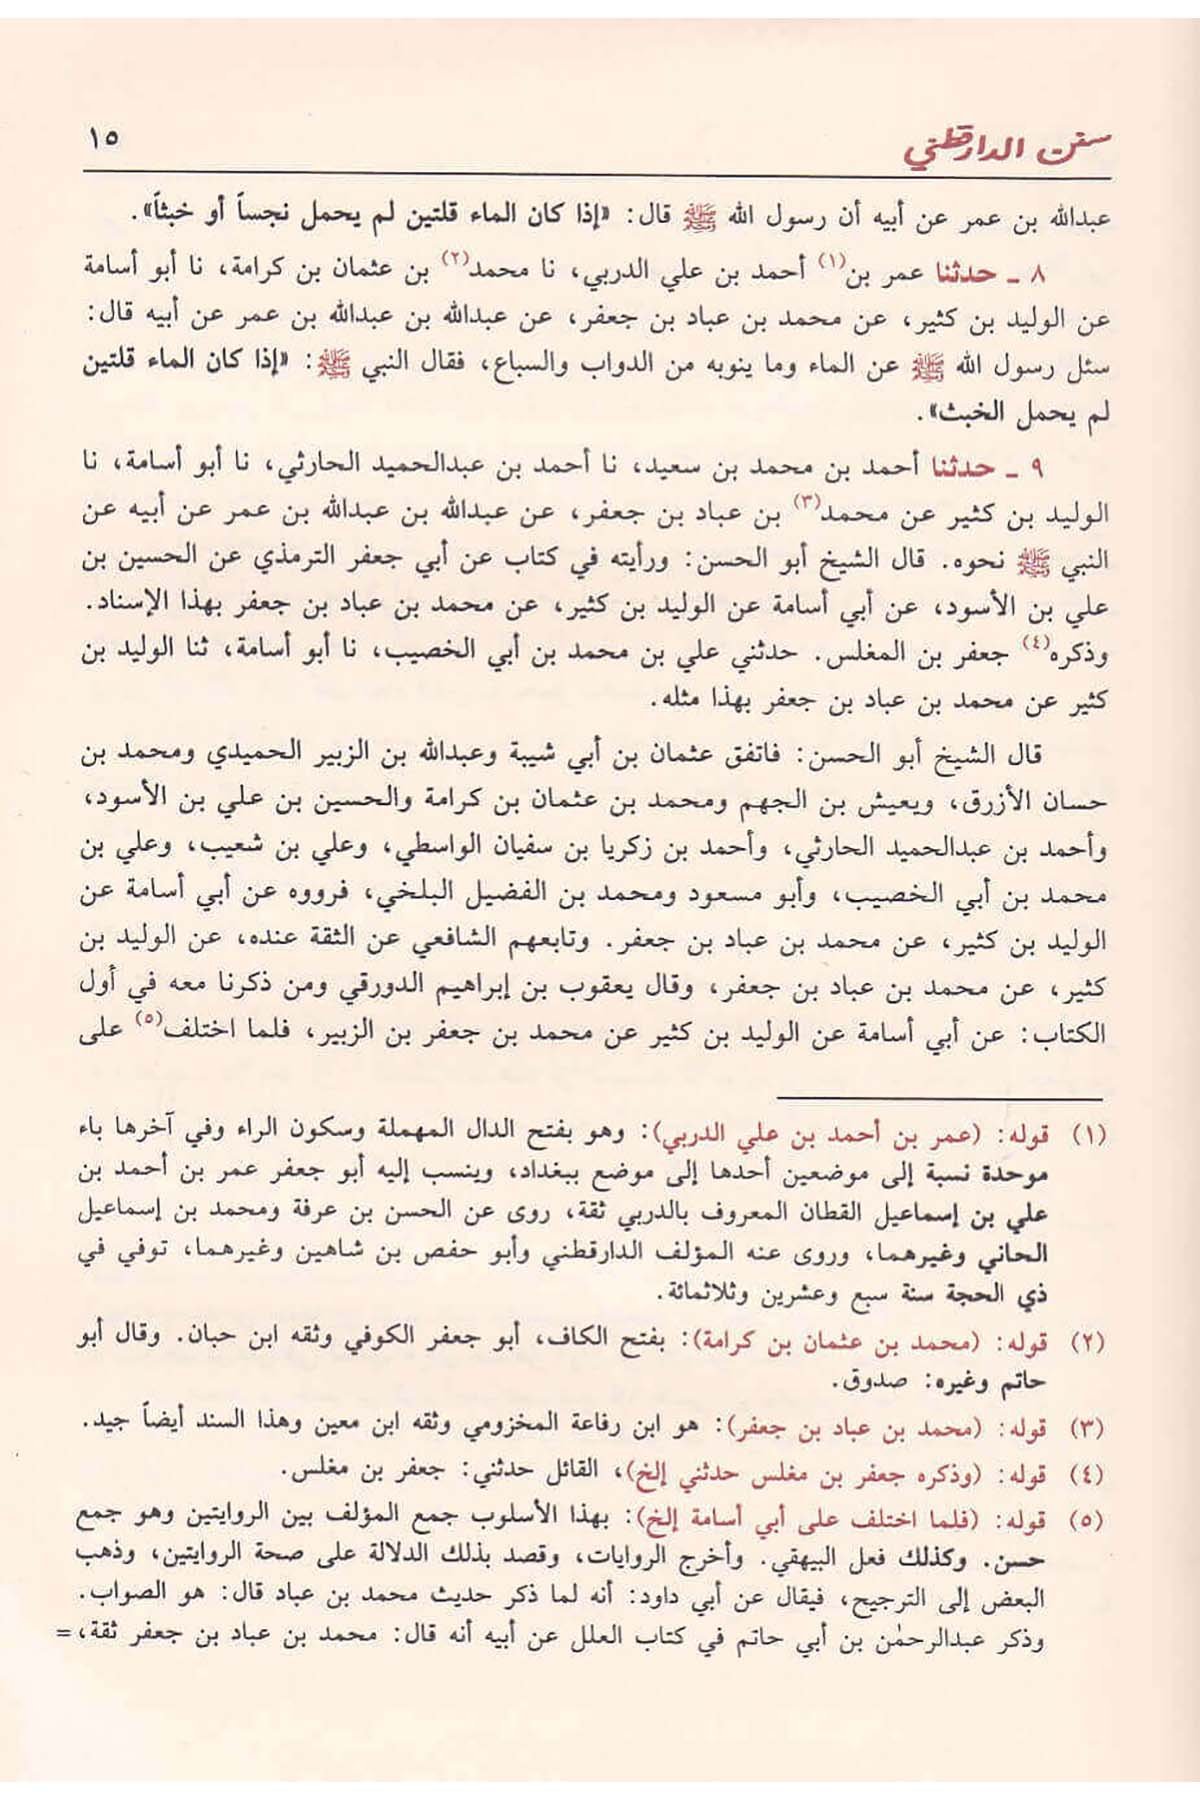 سنن الدارقطني
١٥
عبدالله بن عمر عن أبيه أن رسول الله ﷺ قال: «إذا كان الماء قلتين لم يحمل نجساً أو خبثاً».
٨ ـ حدثنا عمر بن(١) أحمد بن علي الدربي، نا محمد(٢) بن عثمان بن كرامة، نا أبو أسامة
عن الوليد بن كثير، عن محمد بن عباد بن جعفر، عن عبدالله بن عبدالله بن عمر عن أبيه قال:
سئل رسول الله ﷺ عن الماء وما ينوبه من الدواب والسباع، فقال النبي ﷺ: «إذا كان الماء قلتين
لم يحمل الخبث».
٩ ـ حدثنا أحمد بن محمد بن سعيد، نا أحمد بن عبدالحميد الحارثي، نا أبو أسامة، نا
الوليد بن كثير عن محمد(٣) بن عباد بن جعفر، عن عبدالله بن عبدالله بن عمر عن أبيه عن
النبي ﷺ نحوه. قال الشيخ أبو الحسن: ورأيته في كتاب عن أبي جعفر الترمذي عن الحسين بن
علي بن الأسود، عن أبي أسامة عن الوليد بن كثير، عن محمد بن عباد بن جعفر بهذا الإسناد.
وذكره(٤) جعفر بن المغلس. حدثني علي بن محمد بن أبي الخصيب، نا أبو أسامة، ثنا الوليد بن
كثير عن محمد بن عباد بن جعفر بهذا مثله.
قال الشيخ أبو الحسن: فاتفق عثمان بن أبي شيبة وعبدالله بن الزبير الحميدي ومحمد بن
حسان الأزرق، ويعيش بن الجهم ومحمد بن عثمان بن كرامة والحسين بن علي بن الأسود،
وأحمد بن عبدالحميد الحارثي، وأحمد بن زكريا بن سفيان الواسطي، وعلي بن شعيب، وعلي بن
محمد بن أبي الخصيب، وأبو مسعود ومحمد بن الفضيل البلخي، فرووه عن أبي أسامة عن
الوليد بن كثير، عن محمد بن عباد بن جعفر. وتابعهم الشافعي عن الثقة عنده، عن الوليد بن
كثير، عن محمد بن عباد بن جعفر، وقال يعقوب بن إبراهيم الدورقي ومن ذكرنا معه في أول
الكتاب: عن أبي أسامة عن الوليد بن كثير عن محمد بن جعفر بن الزبير، فلما اختلف(٥) على
(١) قوله: (عمر بن أحمد بن علي الدربي): وهو بفتح الدال المهملة وسكون الراء وفي آخرها باء
موحدة نسبة إلى موضعين أحدها إلى موضع ببغداد، وينسب إليه أبو جعفر عمر بن أحمد بن
علي بن إسماعيل القطان المعروف بالدربي ثقة، روى عن الحسن بن عرفة ومحمد بن إسماعيل
الحاني وغيرهما، وروى عنه المؤلف الدارقطني وأبو حفص بن شاهين وغيرهما، توفي في
ذي الحجة سنة سبع وعشرين وثلاثمائة.
(٢) قوله: (محمد بن عثمان بن كرامة): بفتح الكاف، أبو جعفر الكوفي وثقه ابن حبان. وقال أبو
حاتم وغيره: صدوق.
(٣) قوله: (محمد بن عباد بن جعفر): هو ابن رفاعة المخزومي وثقه ابن معين وهذا السند أيضاً جيد.
(٤) قوله: (وذكره جعفر بن مغلس حدثني إلخ)، القائل حدثني: جعفر بن مغلس.
(٥) قوله: (فلما اختلف على أبي أسامة إلخ): بهذا الأسلوب جمع المؤلف بين الروايتين وهو جمع
حسن. وكذلك فعل البيهقي. وأخرج الروايات، وقصد بذلك الدلالة على صحة الروايتين، وذهب
البعض إلى الترجيح، فيقال عن أبي داود: أنه لما ذكر حديث محمد بن عباد قال: هو الصواب.
وذكر عبدالرحمٰن بن أبي حاتم في كتاب العلل عن أبيه أنه قال: محمد بن عباد بن جعفر ثقة، =